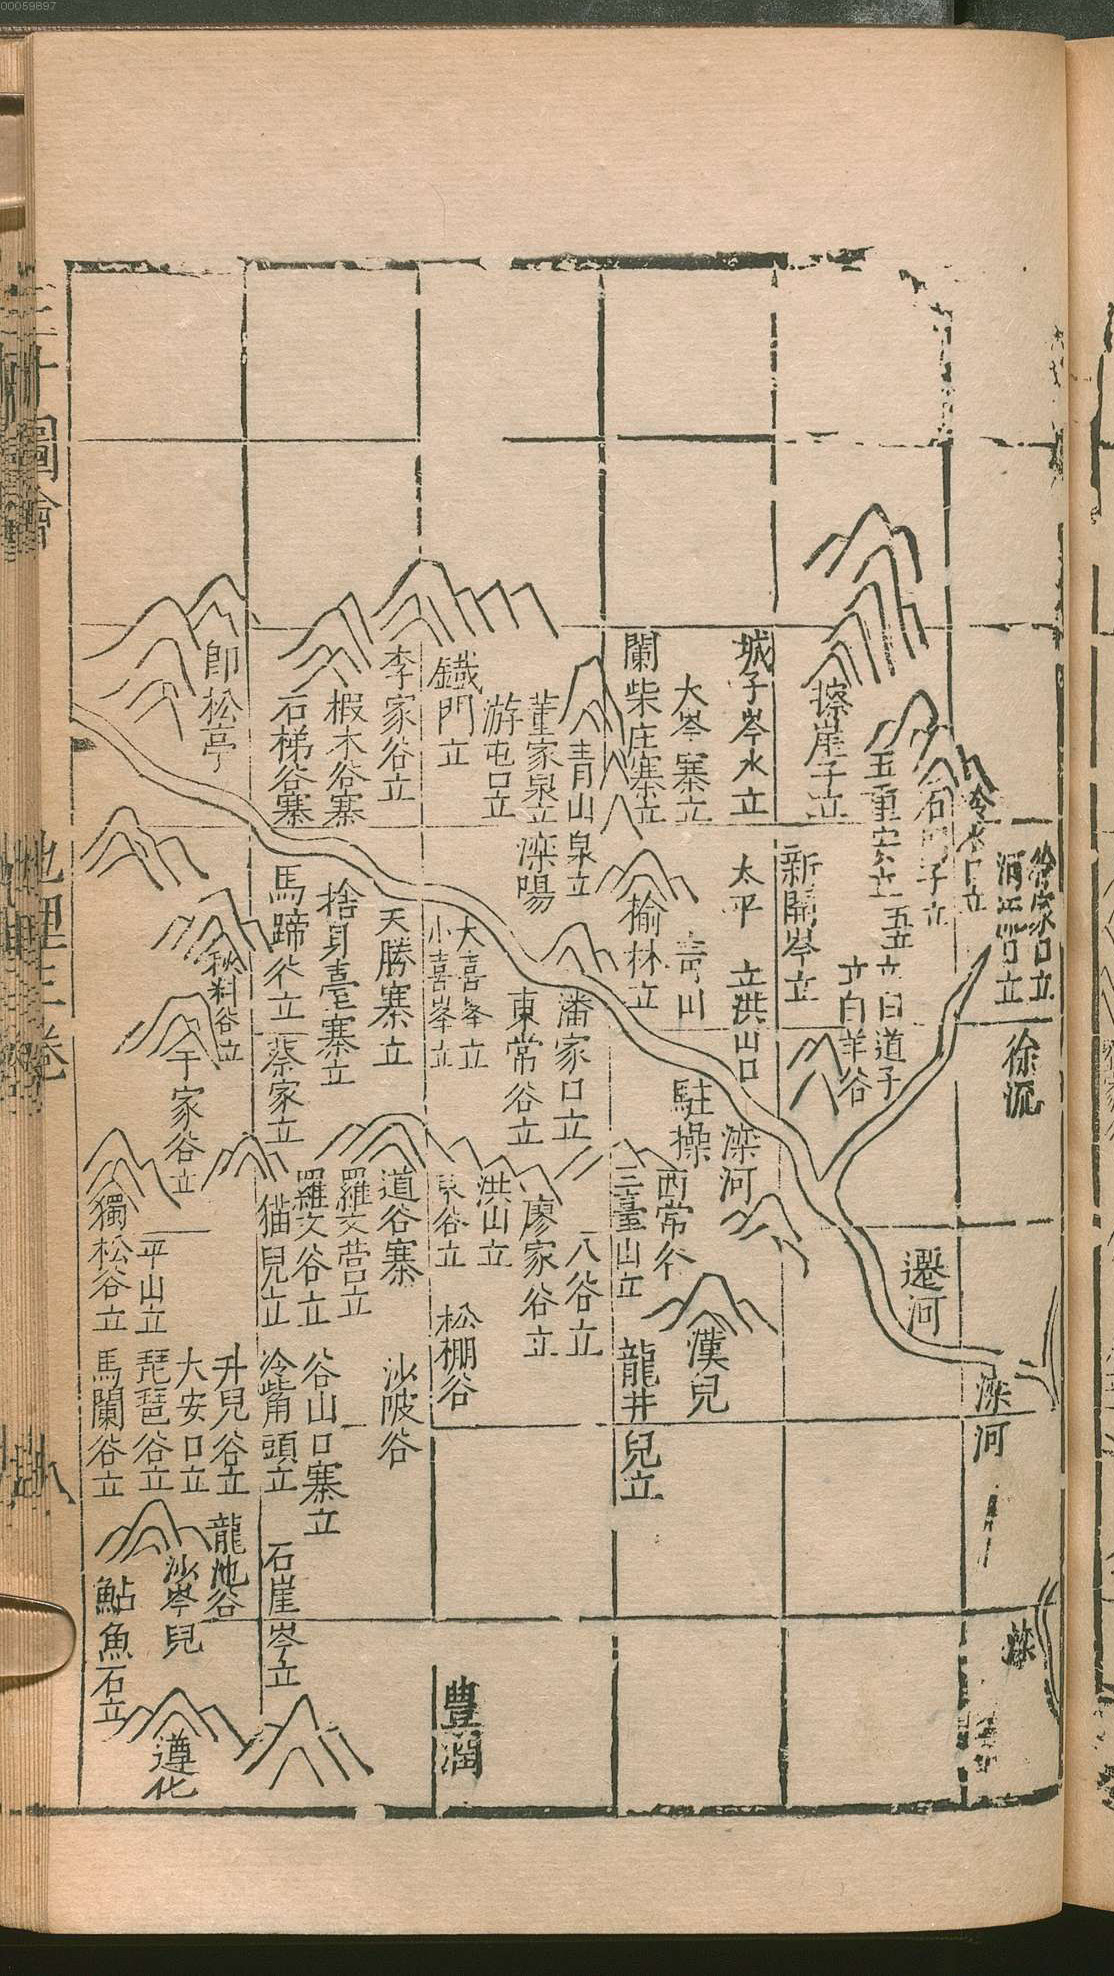 00059897
徐家口立
徐流
冷水口立
石門子立
五重安立
擦崖子立
白道子
立白羊谷
新開岺立
城子岺水立
太平
立洪山口
大岺寨立
闌柴庄寨立
榆林立
青山泉立
董家泉立
灤陽
游屯口立
鐵門立
李家谷立
椵木谷寨
石梯谷寨
即松亭
遷河
灤河
灤河
駐操
西常谷
三臺山立
漢兒
龍井兒立
潘家口立
東常谷立
大喜峯立
小喜峯立
天勝寨立
捨身臺寨立
馬蹄谷立
蔡家立
秋料谷立
于家谷立
八谷立
廖家谷立
洪山立
東谷立
松棚谷
道谷寨
羅文营立
羅文谷立
猫兒立
沙陂谷
谷山口寨立
冷觜頭立
石崖岺立
平山立
獨松谷立
升兒谷立
大安口立
琵琶谷立
馬闌谷立
龍池谷
沙岺兒
鮎魚石立
遵化
豊潤
三才圖會
地理三卷
八